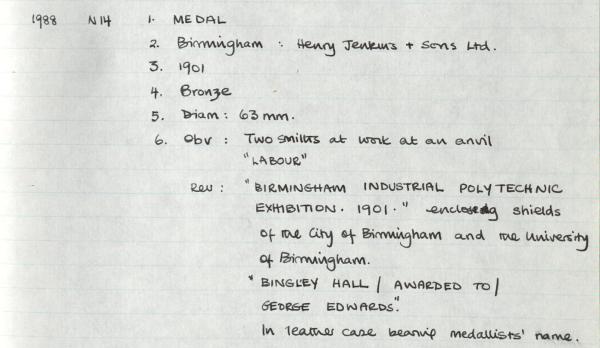 1988 N14 1. MEDAL
2. Birmingham : Henry Jenkins + Sons Ltd.
3. 1901
4. Bronze
5. Diam : 63 mm.
6. Obv : Two smiths at work at an anvil
"LABOUR"
Rev : "BIRMINGHAM INDUSTRIAL POLYTECHNIC
EXHIBITION. 1901." enclosing shields
of the City of Birmingham and the University
of Birmingham.
"BINGLEY HALL / AWARDED TO /
GEORGE EDWARDS."
In leather case bearing medallists' name.